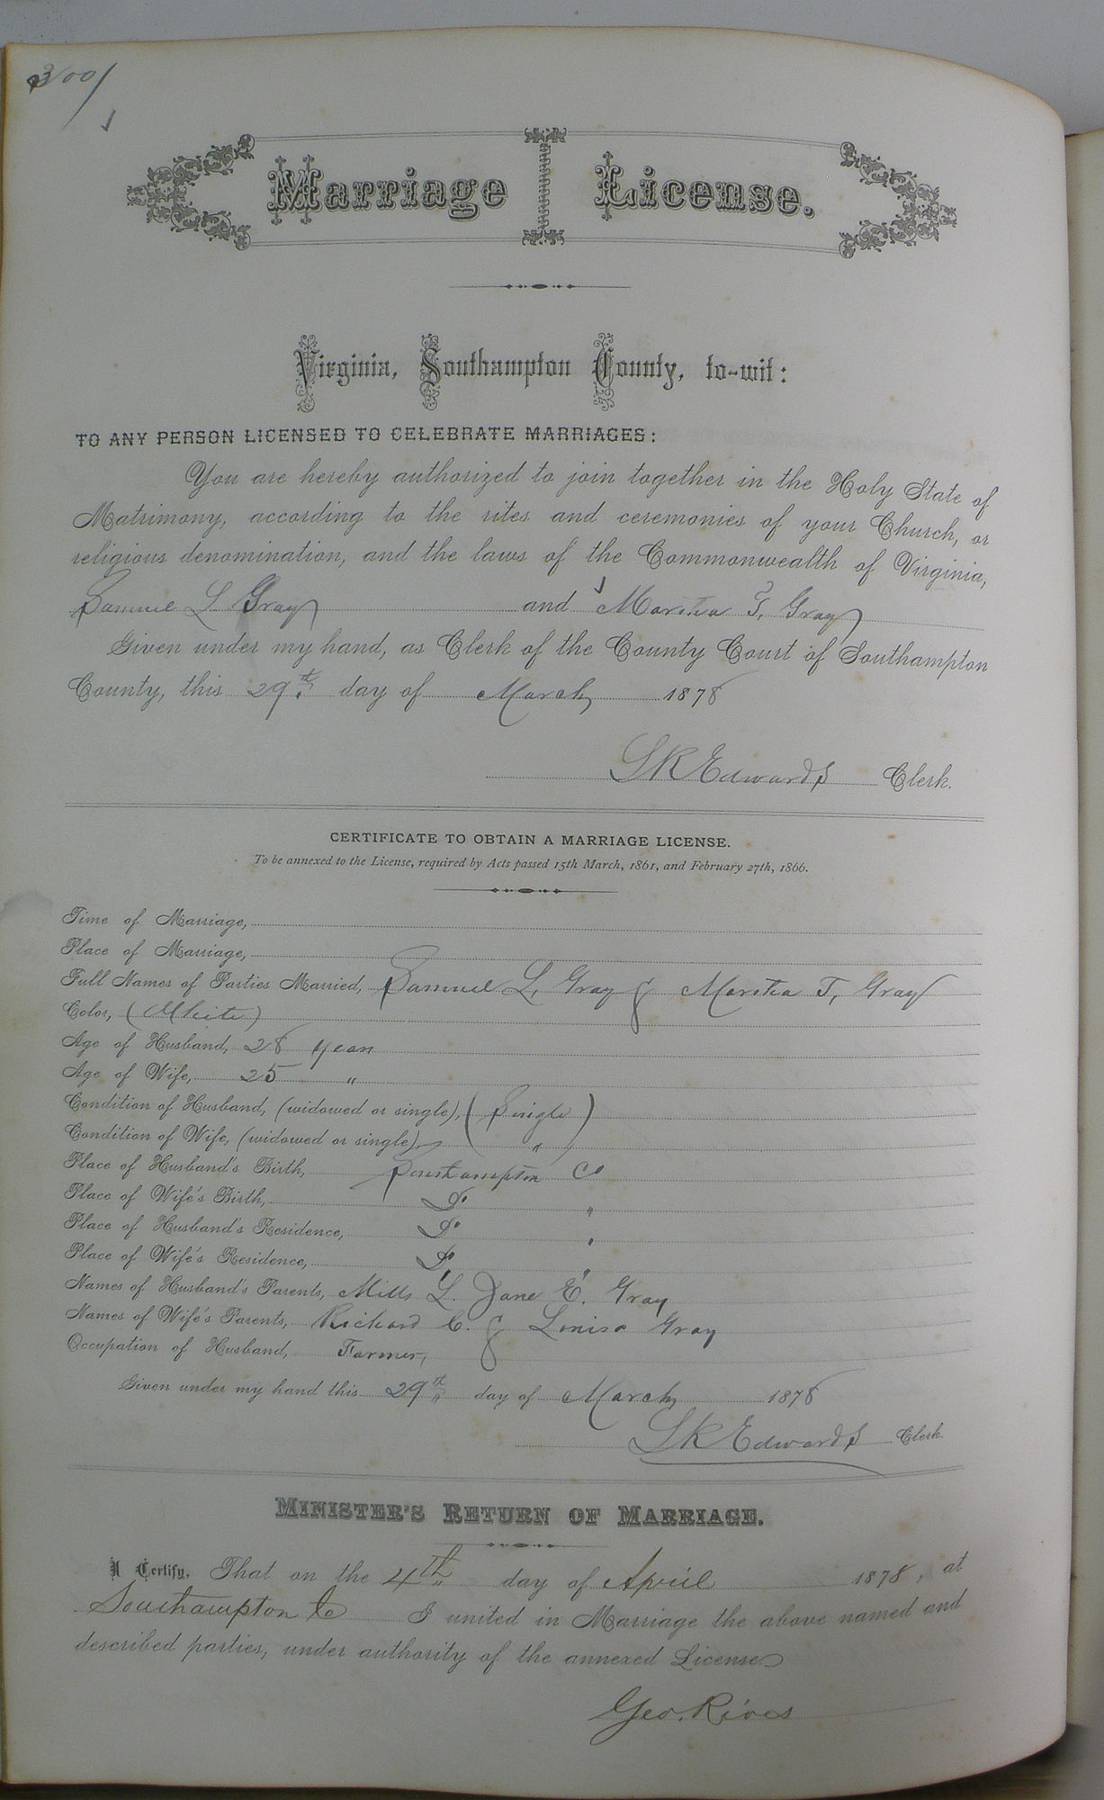 300
Marriage License.
Virginia, Southampton County, to-wit:
TO ANY PERSON LICENSED TO CELEBRATE MARRIAGES:
You are hereby authorized to join together in the Holy State of
Matrimony, according to the rites and ceremonies of your Church, or
religious denomination, and the laws of the Commonwealth of Virginia,
Samuel L. Gray and Martha T. Gray
Given under my hand, as Clerk of the County Court of Southampton
County, this 29th day of March 1878
L R Edwards Clerk.
CERTIFICATE TO OBTAIN A MARRIAGE LICENSE.
To be annexed to the License, required by Acts passed 15th March, 1861, and February 27th, 1866.
Time of Marriage,
Place of Marriage,
Full Names of Parties Married, Samuel L. Gray & Martha T. Gray
Color, (White)
Age of Husband, 28 years
Age of Wife, 25 "
Condition of Husband, (widowed or single), (Single)
Condition of Wife, (widowed or single), "
Place of Husband's Birth, Southampton Co
Place of Wife's Birth, Do "
Place of Husband's Residence, Do "
Place of Wife's Residence, Do "
Names of Husband's Parents, Mills L. & Jane E. Gray
Names of Wife's Parents, Richard C. & Louisa Gray
Occupation of Husband, Farmer,
Given under my hand this 29th day of March 1878
L R Edwards Clerk
MINISTER'S RETURN OF MARRIAGE.
I Certify, That on the 4th day of April 1878, at
Southampton Co I united in Marriage the above named and
described parties, under authority of the annexed License
Geo. Rives